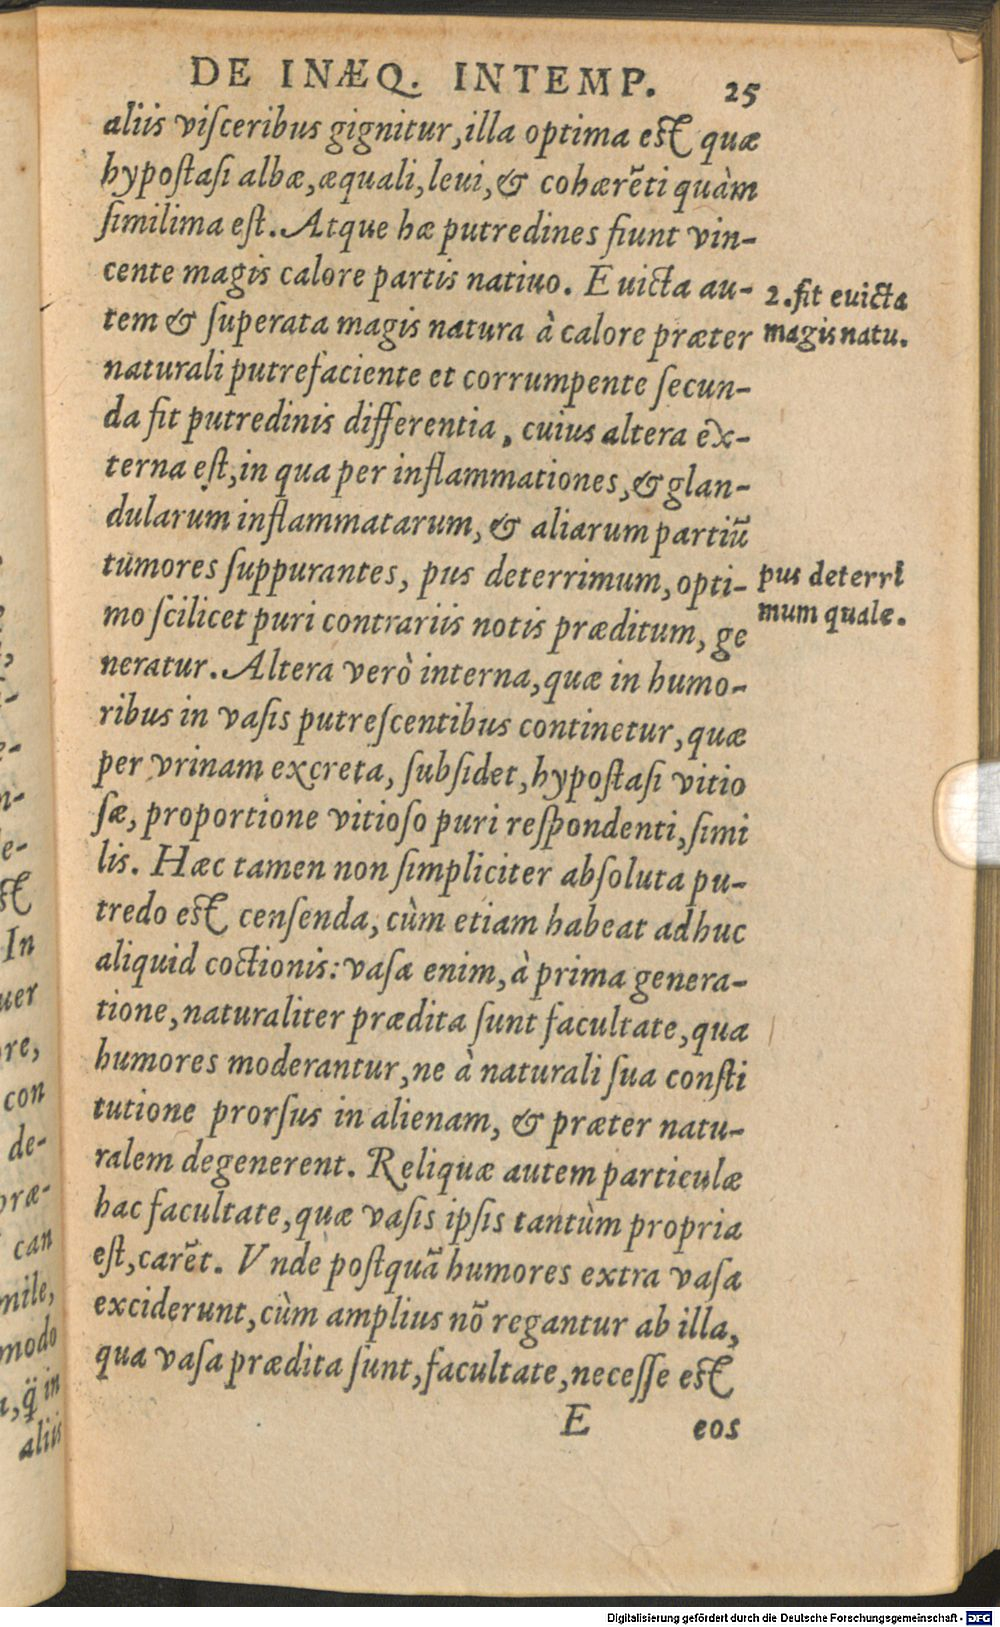 DE INÆQ. INTEMP. 25
aliis viſceribus gignitur, illa optima eſt quæ
hypoſtaſi albæ, æquali, leui, & cohærẽti quàm
ſimilima eſt. Atque hæ putredines fiunt vin-
cente magis calore partis natiuo. Euicta au-
tem & ſuperata magis natura à calore præter
naturali putrefaciente et corrumpente ſecun-
da fit putredinis differentia, cuius altera ex-
terna eſt, in qua per inflammationes, & glan-
dularum inflammatarum, & aliarum partiũ
tumores ſuppurantes, pus deterrimum, opti-
mo ſcilicet puri contrariis notis præditum, ge
neratur. Altera verò interna, quæ in humo-
ribus in vaſis putreſcentibus continetur, quæ
per vrinam excreta, ſubſidet, hypoſtaſi vitio
ſæ, proportione vitioſo puri reſpondenti, ſimi
lis. Hæc tamen non ſimpliciter abſoluta pu-
tredo eſt cenſenda, cùm etiam habeat adhuc
aliquid coctionis: vaſa enim, à prima genera-
tione, naturaliter prædita ſunt facultate, qua
humores moderantur, ne à naturali ſua conſti
tutione prorſus in alienam, & præter natu-
ralem degenerent. Reliquæ autem particulæ
hac facultate, quæ vaſis ipſis tantùm propria
eſt, carẽt. Vnde poſtquã humores extra vaſa
exciderunt, cùm amplius nõ regantur ab illa,
qua vaſa prædita ſunt, facultate, neceſſe eſt
E eos
2. fit euicta
magis natu.
pus deterri
mum quale.
In
uer
re,
con
de-
præ-
can
mile,
modo
q̃ in
aliis
Digitalisierung gefördert durch die Deutsche Forschungsgemeinschaft - DFG